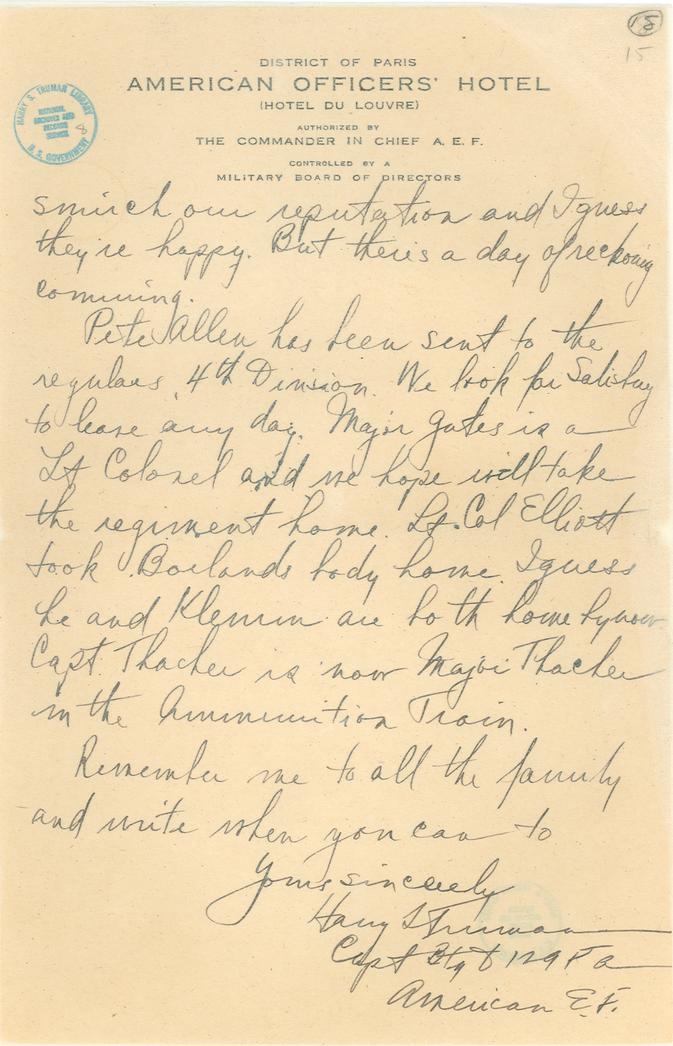 18
15
DISTRICT OF PARIS
AMERICAN OFFICERS' HOTEL
(HOTEL DU LOUVRE)
AUTHORIZED BY
THE COMMANDER IN CHIEF A. E. F.
CONTROLLED BY A
MILITARY BOARD OF DIRECTORS
HARRY S. TRUMAN LIBRARY
NATIONAL
ARCHIVES AND
RECORDS
SERVICE
U. S. GOVERNMENT
8
smirch our reputation and I guess
they're happy. But there's a day of reckoning
comming.
Pete Allen has been sent to the
regulars, 4th Division. We look for Salisbury
to leave any day. Major Gates is a
Lt Colonel and we hope will take
the regiment home. Lt. Col Elliott
took Boilands body home. I guess
he and Klemm are both home by now.
Capt. Thacher is now Major Thacher
in the Ammunition Train.
Remember me to all the family
and write when you can to
Yours sincerely
Harry S Truman
Capt Bty D 129 F a
American E.F.